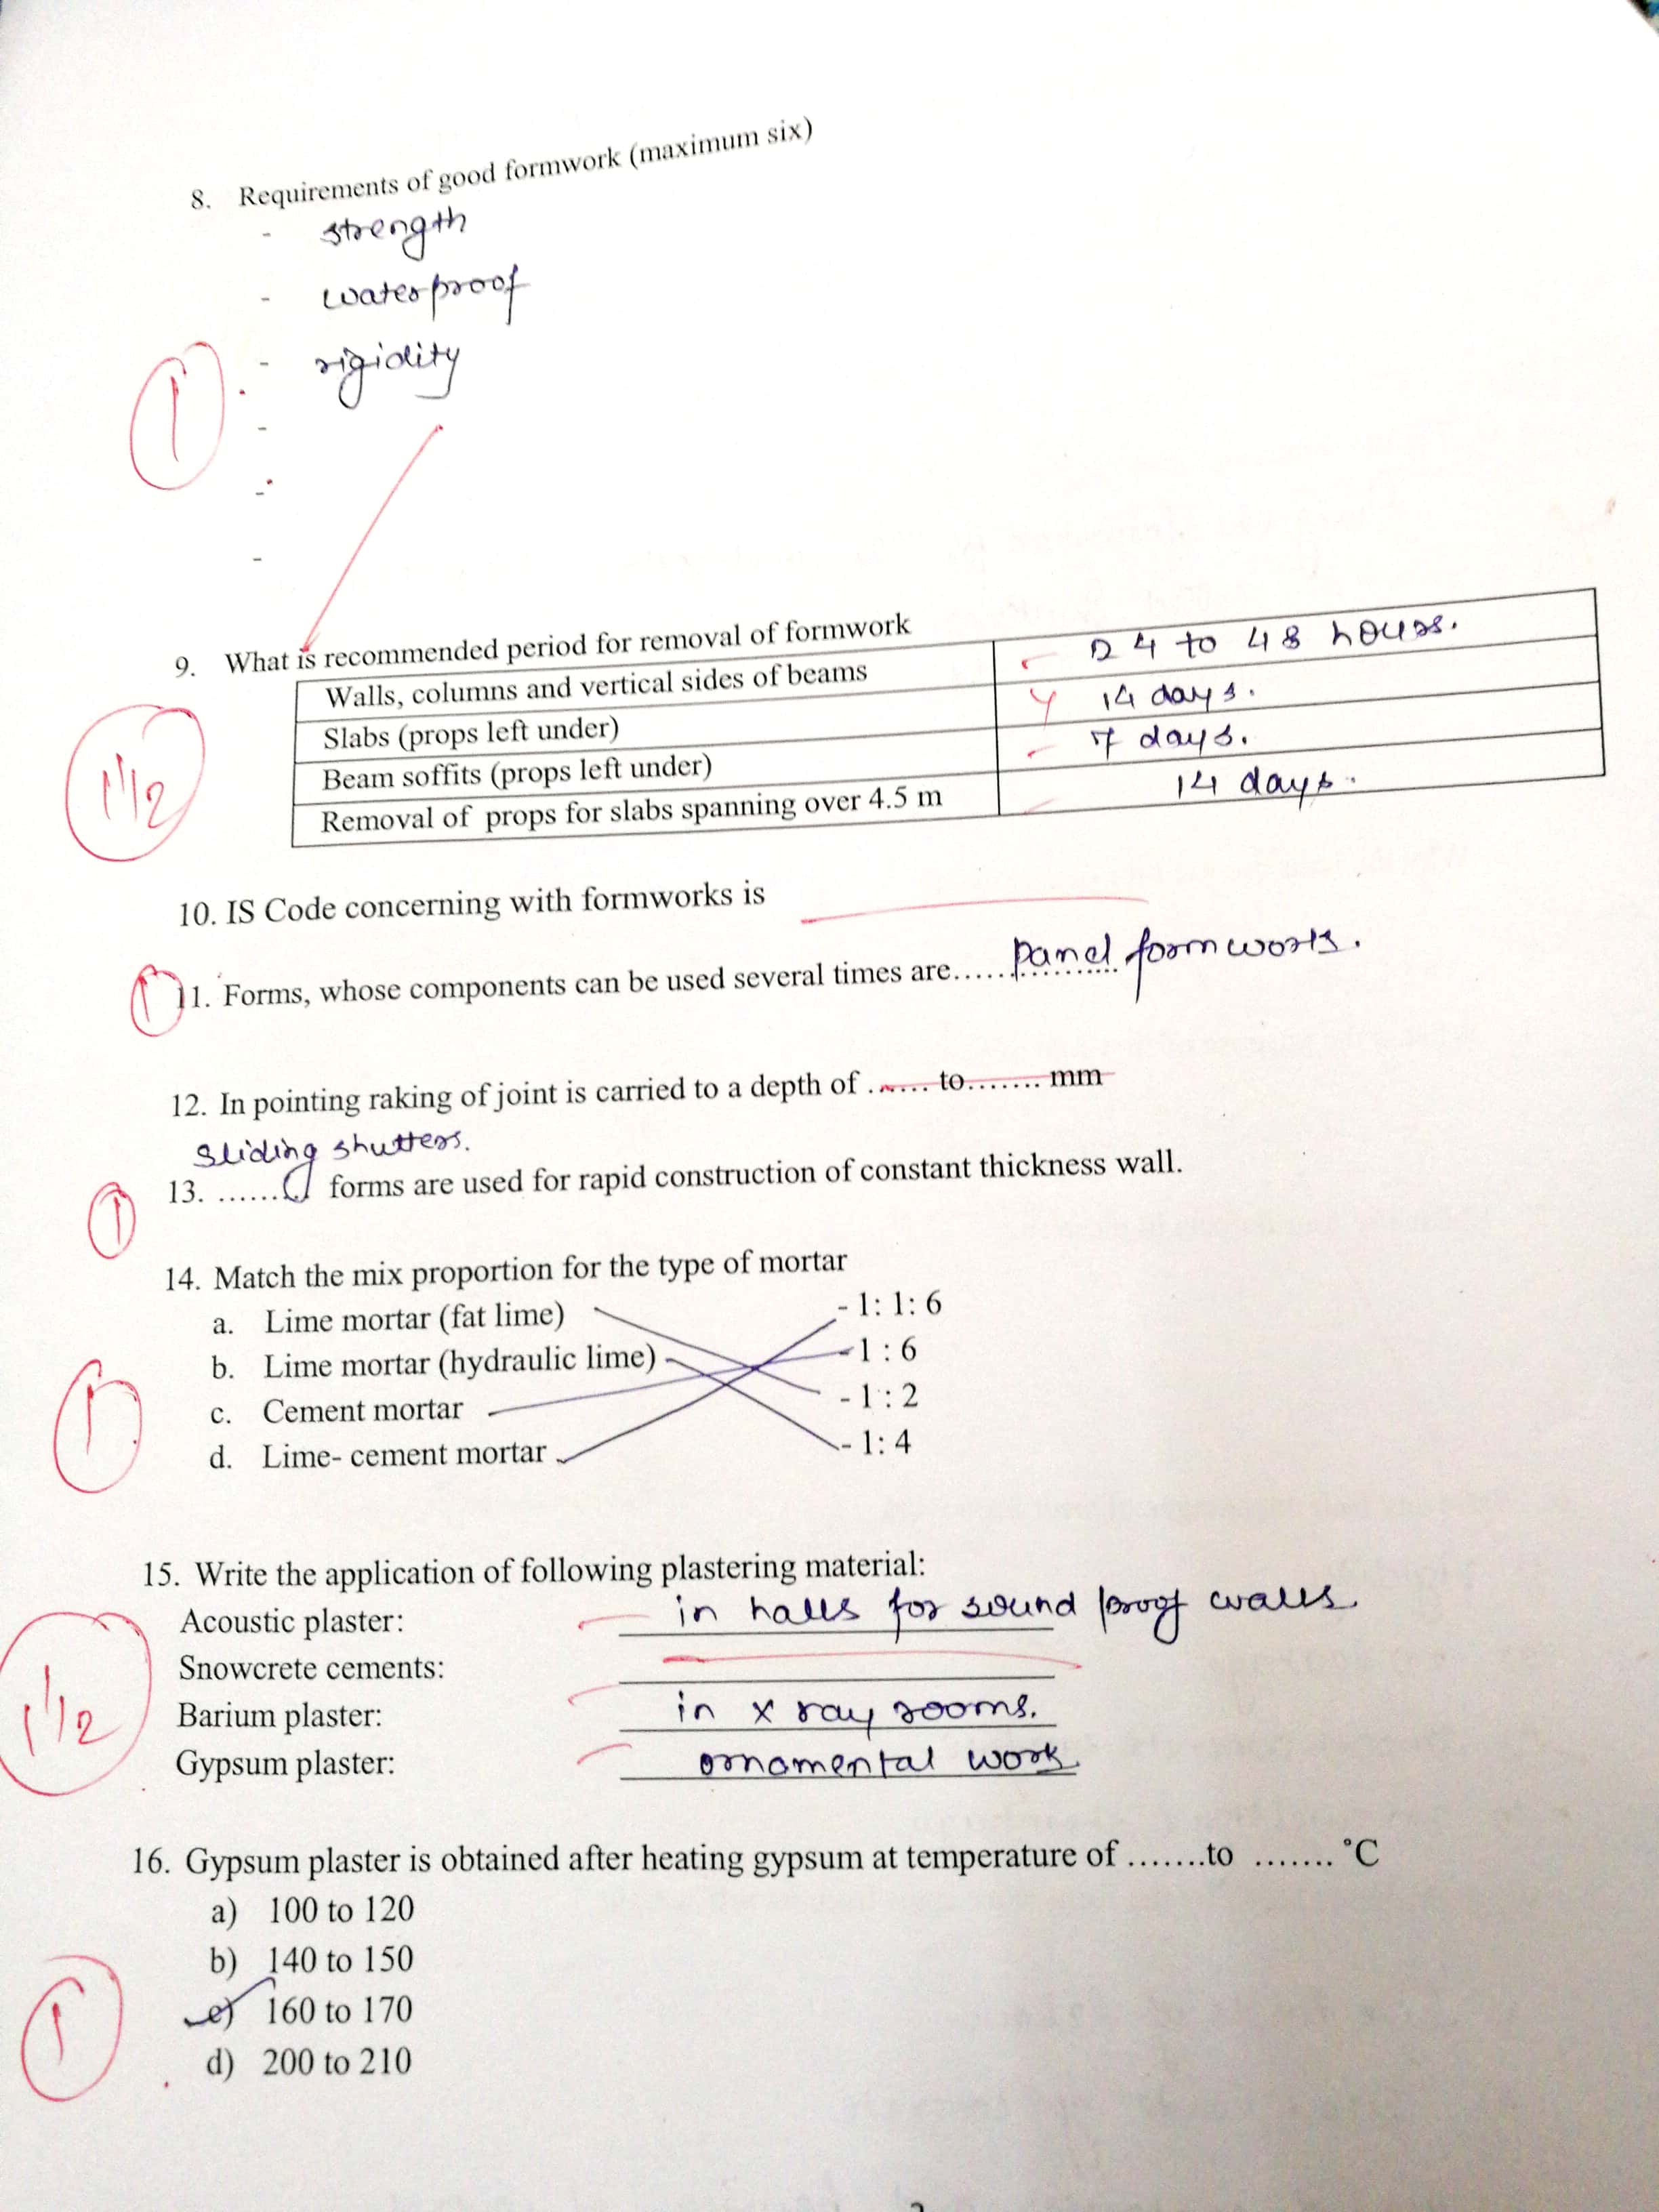 8. Requirements of good formwork (maximum six)
- strength
- waterproof
- rigidity
-
-
-
1
9. What is recommended period for removal of formwork
Walls, columns and vertical sides of beams 24 to 48 hours.
Slabs (props left under) 14 days.
Beam soffits (props left under) 7 days.
Removal of props for slabs spanning over 4.5 m 14 days.
1 1/2
10. IS Code concerning with formworks is
1
11. Forms, whose components can be used several times are.................. panel formwork.
12. In pointing raking of joint is carried to a depth of ....... to........ mm
sliding shutters.
13. ...... forms are used for rapid construction of constant thickness wall.
1
14. Match the mix proportion for the type of mortar
a. Lime mortar (fat lime) - 1: 1: 6
b. Lime mortar (hydraulic lime) - 1 : 6
c. Cement mortar - 1 : 2
d. Lime- cement mortar - 1: 4
1
15. Write the application of following plastering material:
Acoustic plaster: in halls for sound proof walls.
Snowcrete cements:
Barium plaster: in x ray rooms.
Gypsum plaster: ornamental work
1 1/2
16. Gypsum plaster is obtained after heating gypsum at temperature of .......to ....... °C
a) 100 to 120
b) 140 to 150
c) 160 to 170
d) 200 to 210
1